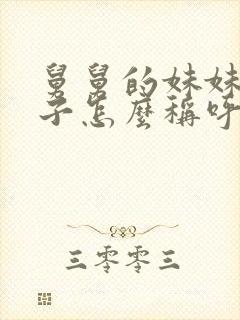 舅舅的妹妹
子怎麼稱呼
三零零三